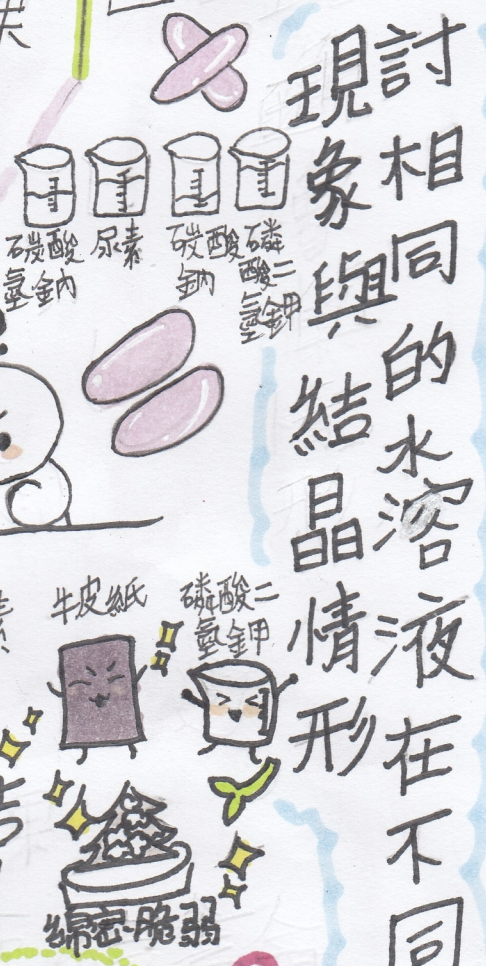 討相同的水溶液在不同
現象與結晶情形
碳酸
氫鈉
尿素
碳酸
鈉
磷
酸二
氫鉀
牛皮紙
磷酸二
氫鉀
綿密脆弱